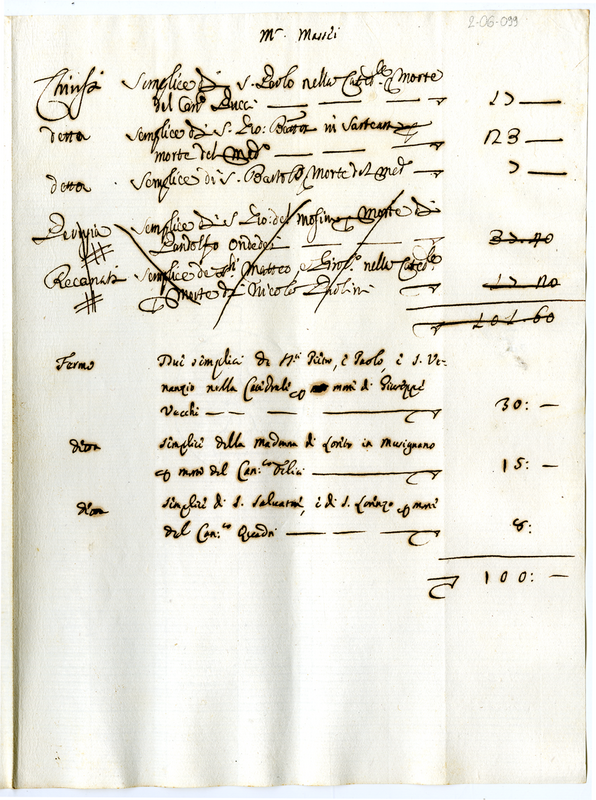 2-06-099
Mr.
Chiusi Semplice di S. Paolo nella Cated.le Morte
del Can.co Lucci 17
detta Semplice di S. Gio: Batta in
morte del med.o 23
detta Semplice di S. Bartolo, Morte del med.o 7
Perugia Semplice di S. Gio: del Morte di
Pandolfo 37.40
Recanati Semplice de SS.ti Matteo e Girol.o nella Cated.le
Morte di Nicolò 17.20
101.60
Fermo Dui semplici di S.ti Pietro, è Paolo, è S. Ve-
nanzio nella Catidrali p morte di Giuseppi
Vecchi 30:
ditta Simplici della madonna di Loreto in Musignano
p morti del Can.co Filici 15:
ditta Simplici di S. Salvatori, è di S. Lorenzo p morti
del Can.co Quadri 8:
100: